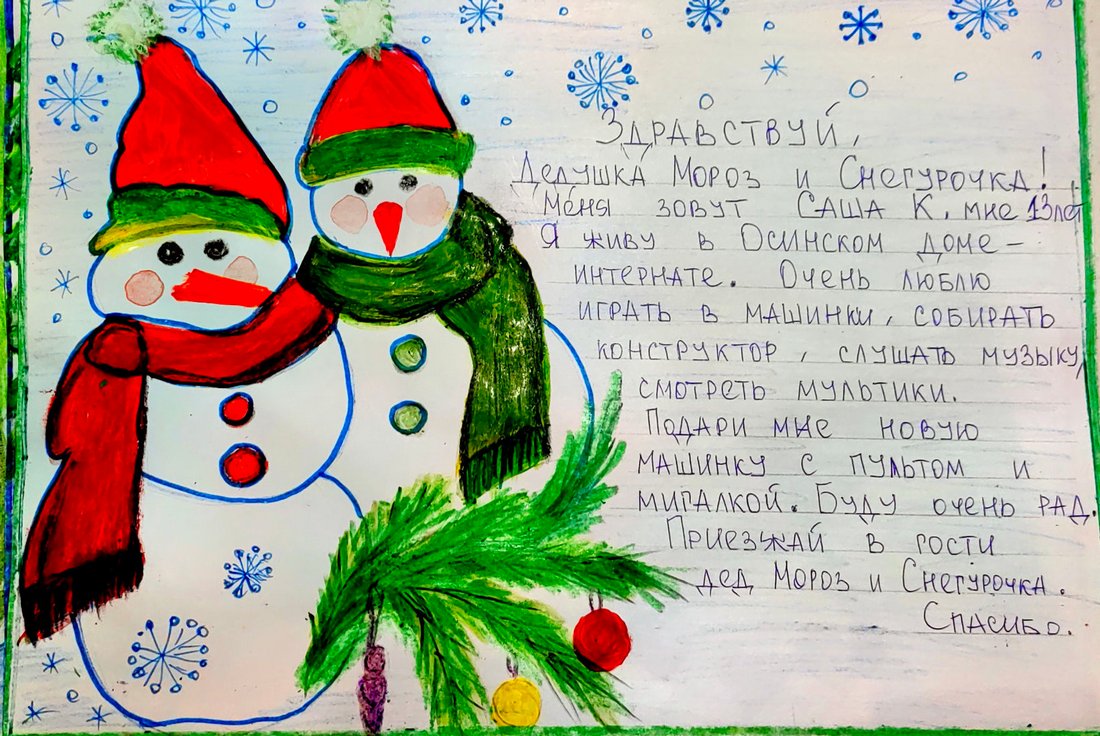 Здравствуй,
Дедушка Мороз и Снегурочка!
Меня зовут Саша К. мне 13 лет
Я живу в Осинском доме-
интернате. Очень люблю
играть в машинки, собирать
конструктор, слушать музыку,
смотреть мультики.
Подари мне новую
машинку с пультом и
мигалкой. Буду очень рад.
Приезжай в гости
дед Мороз и Снегурочка.
Спасибо.